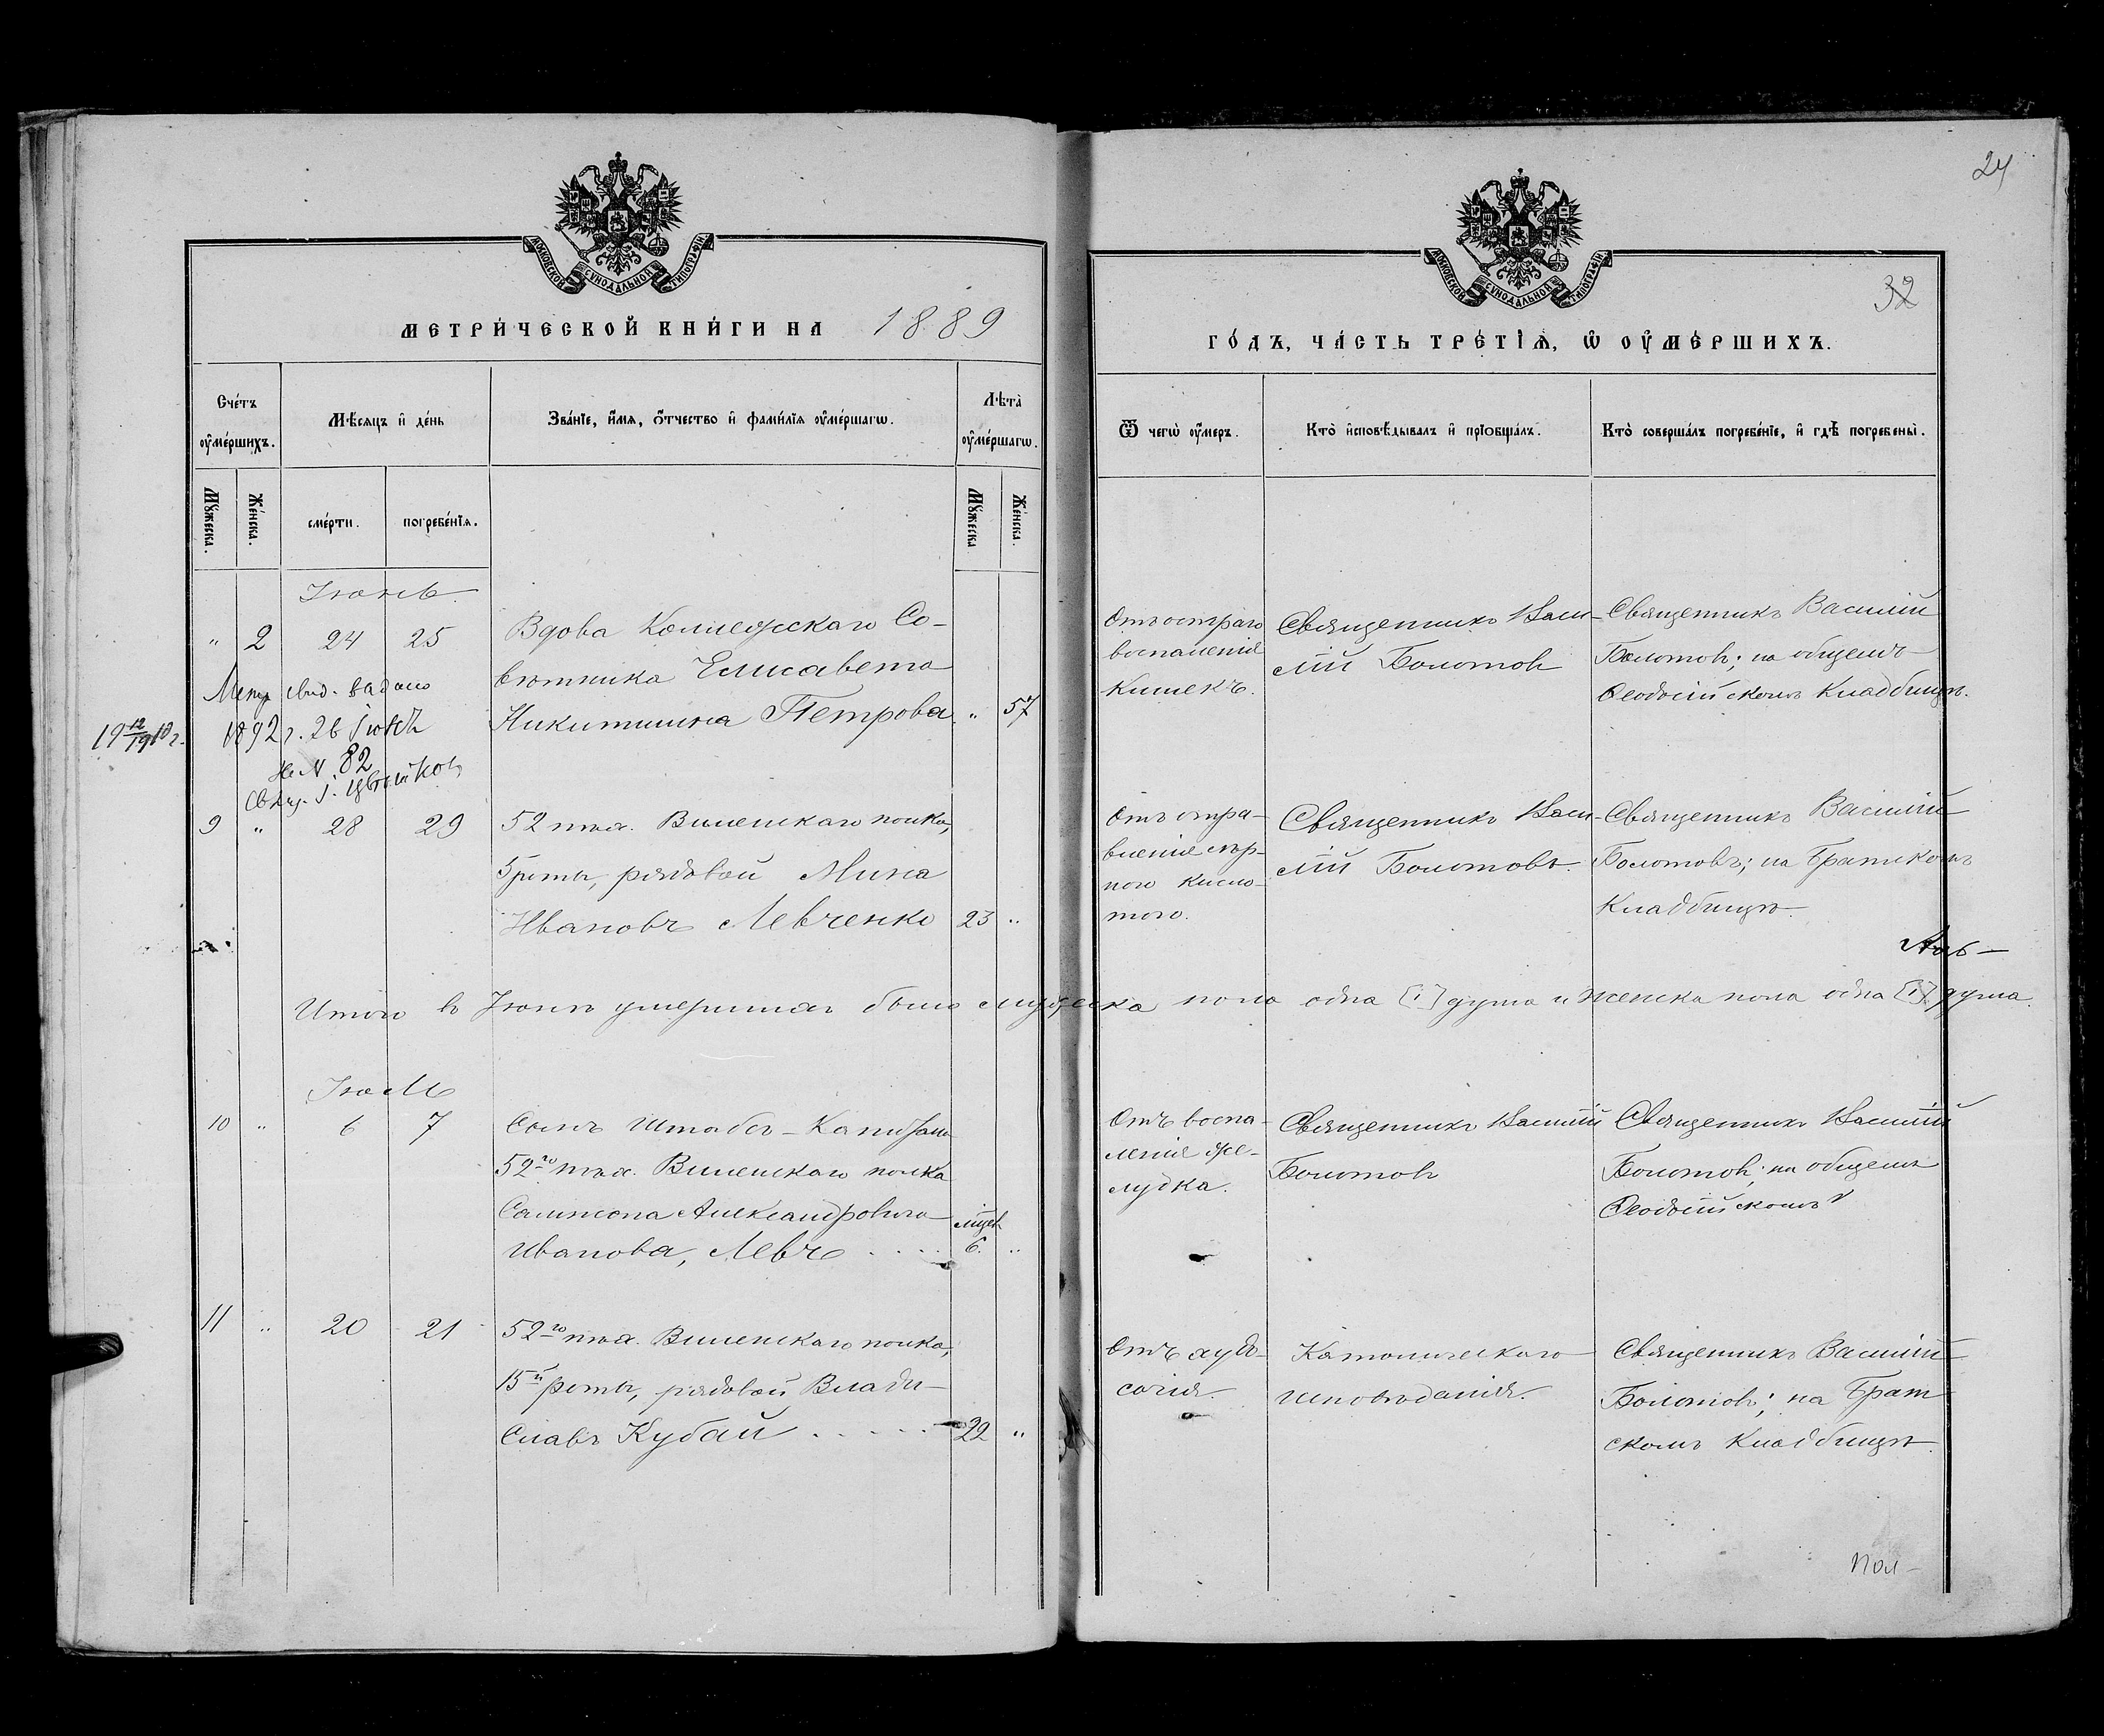 24
МОСКОВСКОЙ СѴНОДАЛЬНОЙ ТИПОГРАФІИ
МОСКОВСКОЙ СѴНОДАЛЬНОЙ ТИПОГРАФІИ
32
МЕТРИ́ЧЕСКОЙ КНИ́ГИ НА 1889
ГО́ДЪ, ЧА́СТЬ ТРЕ́ТІѦ, Ѡ҆ ОУ҆МЕ́РШИХЪ.
Сче́тъ оу҆ме́ршихъ.
Мѣ́сяцъ и҆ де́нь
Зва́нїе, и҆́мѧ, ѻ҆́тчество и҆ фами́лїѧ оу҆ме́ршагѡ.
Лѣ́та оу҆ме́ршагѡ.
Ѿ чегѡ̀ оу҆́меръ.
Кто̀ и҆сповѣ́дывалъ и҆ прїобща́лъ.
Кто̀ соверша́лъ погребе́нїе, и҆ гдѣ̀ погребены̀.
Мꙋ́жеска.
Же́нска.
сме́рти.
погребе́нїѧ.
Мꙋ́жеска
Же́нска.
Іюнь
„ 2 24 25
Вдова Коллежскаго Со-
вѣтника Елисавета
Никитишна Петрова „ 57
Отъ остраго
воспаленія
кишекъ.
Священникъ Васи-
лій Болотовъ
Священникъ Василій
Болотовъ; на общемъ
Ѳеодосійскомъ Кладбищѣ.
Метр. свид. выдано
1892 г. 26
№ 82
Свящ. І. Цвѣтковъ
9 „ 28 29
52 пѣх. Виленскаго полка,
5 роты, рядовой Мина
Ивановъ Левченко 23 „
Отъ отра-
вленія сѣр-
ною кисло-
тою.
Священникъ Васи-
лій Болотовъ.
Священникъ Василій
Болотовъ; на Братскомъ
Кладбищѣ.
Итого въ Іюнѣ умершихъ было мужеска пола одна [1] душа и женска пола одна [1] душа.
Іюль
10 „ 6 7
Сынъ Штабсъ-Капитана
52го пѣх. Виленскаго полка
Сампсона Александровича
Иванова, Левъ . . . . мѣсяц. 6. „
Отъ воспа-
ленія же-
лудка.
Священникъ Василій
Болотовъ
Священникъ Василій
Болотовъ; на общемъ
Ѳеодосійскомъ
11 „ 20 21
52го пѣх. Виленскаго полка,
15й роты, рядовой Влади-
славъ Кубай . . . . . 22 „
Отъ худо-
сочія.
Католическаго
исповѣданія.
Священникъ Василій
Болотовъ; на Брат
скомъ Кладбищѣ.
Пол-